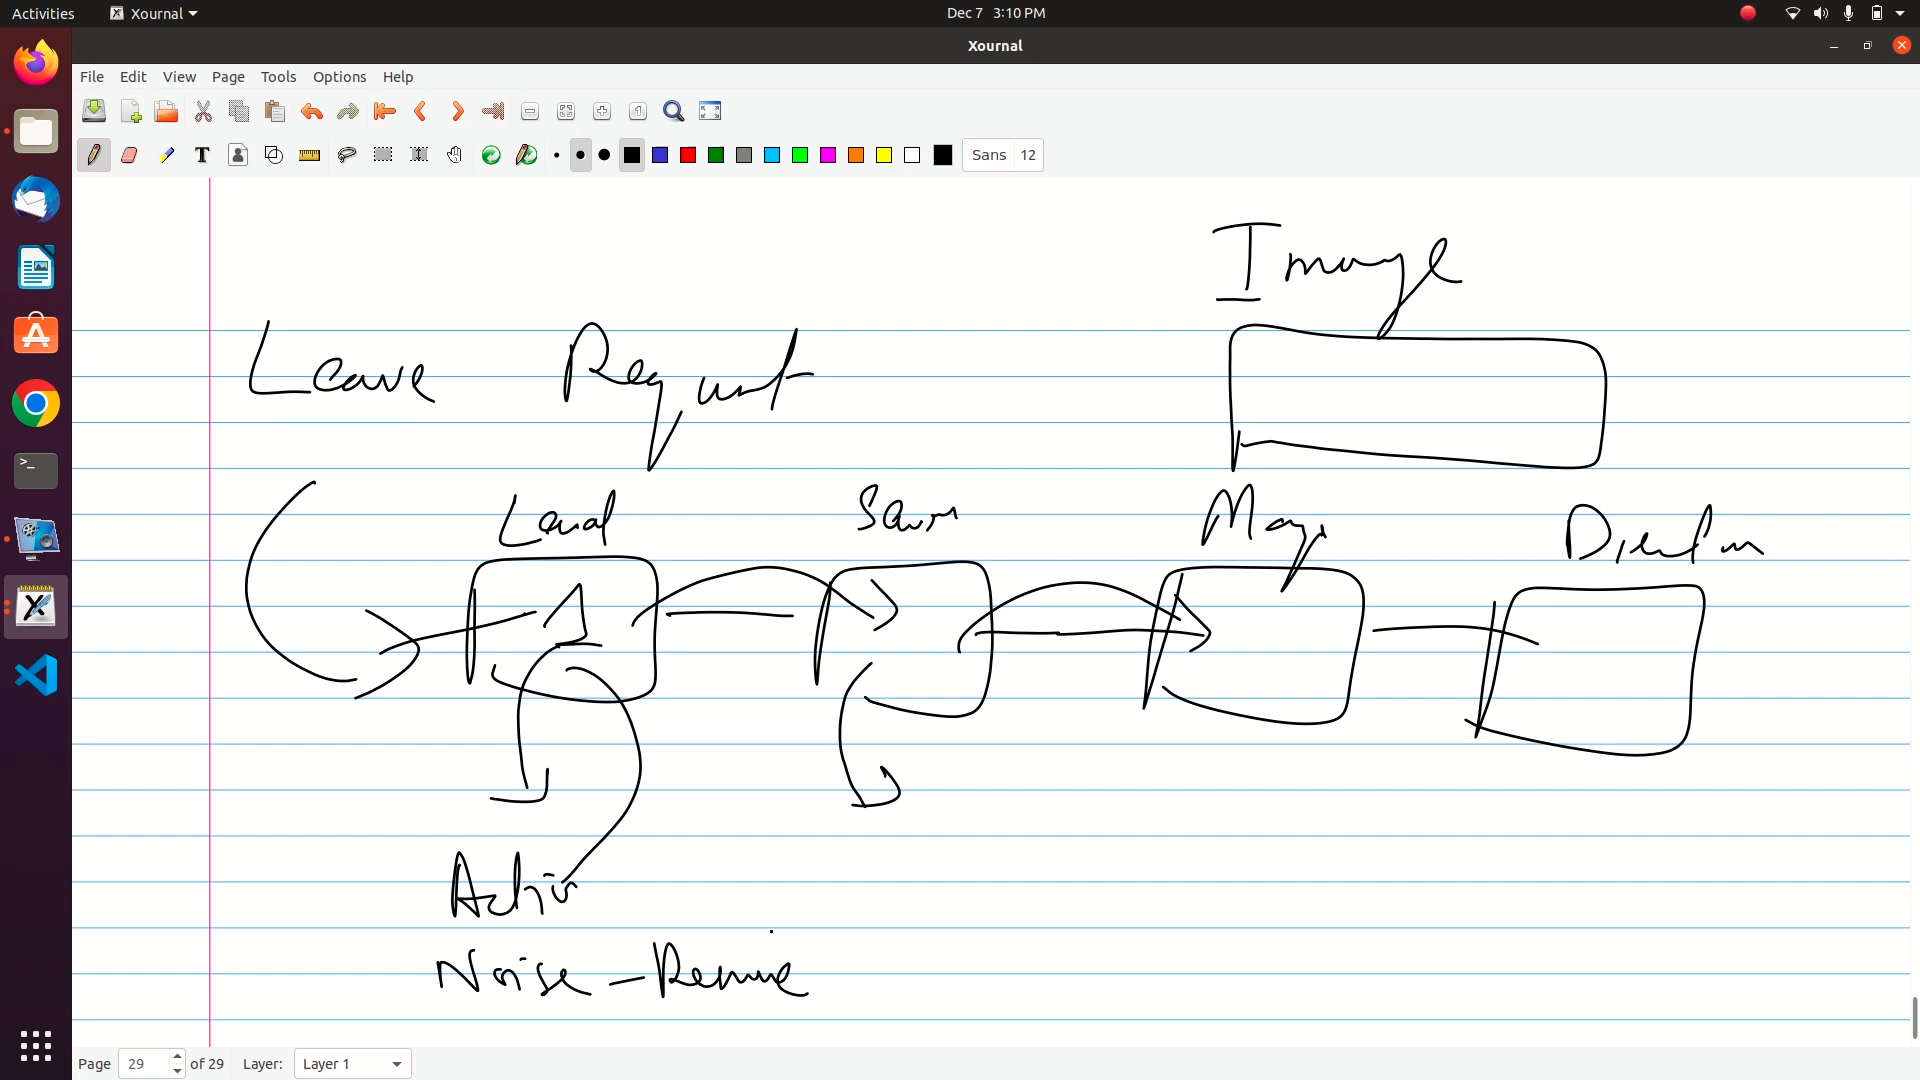 Activities Xournal Dec 7 3:10 PM
Xournal
File Edit View Page Tools Options Help
T Sans 12
Image
Leave Request
Action
Noise - Remove
Page 29 of 29 Layer: Layer 1